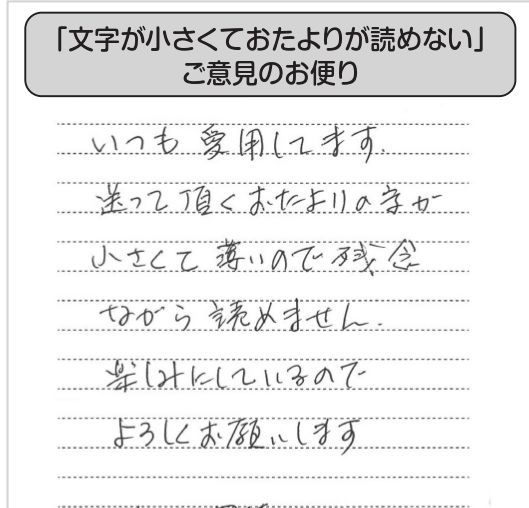 「文字が小さくておたよりが読めない」
ご意見のお便り
いつも愛用してます.
送って頂くおたよりの字が
小さくて薄いので残念
ながら読めません.
楽しみにしているので
よろしくお願いします